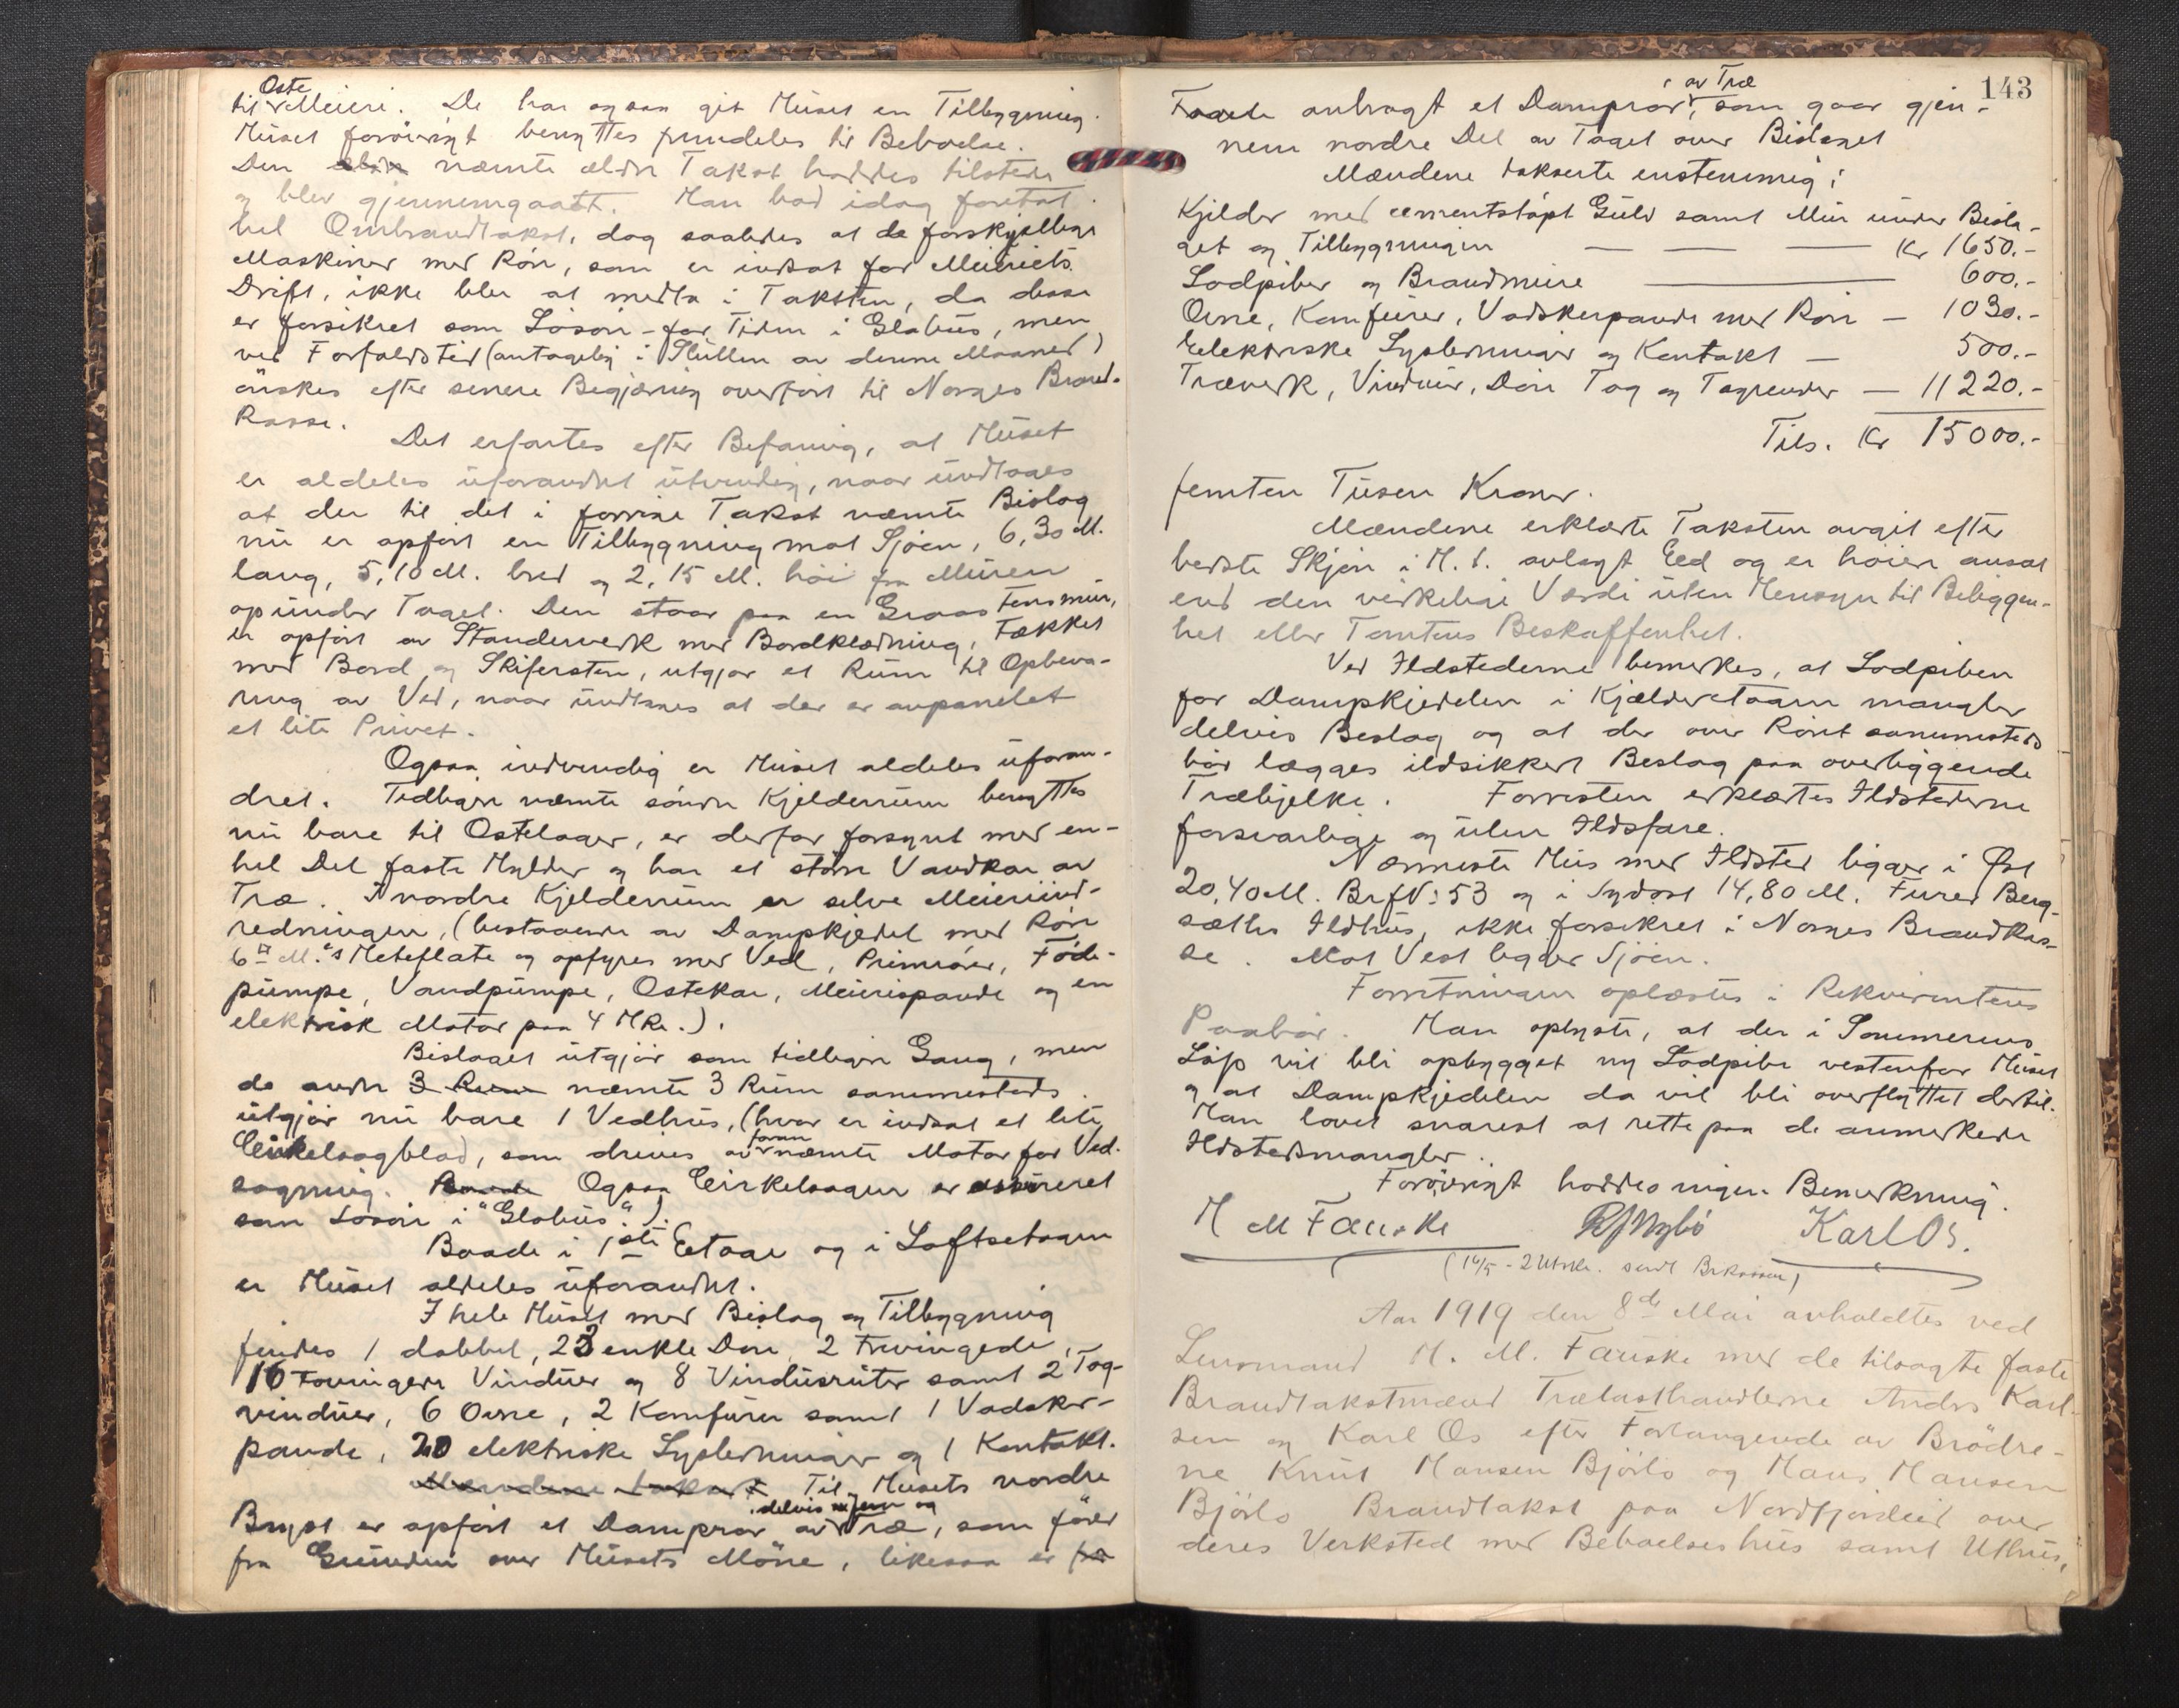 Oste
til Meieri. De har ogsaa git Huset en Tilbygning.
Huset forövrigt benyttes fremdeles til Beboelse.
Den nævnte ældre Takst haddes tilstede
og blev gjennemgaaet. Man bad idag foretat
hel Ombrandtakst, dog saaledes at de forskjellige
Maskiner med Rör, som er indsat for Meieriets
Drift, ikke blir at medta i Taksten, da disse
er forsikret som Lösöre for Tiden i Globus, men
ved Forfaldstid (antagelig i Slutten av denne Maaned)
önskes efter senere Begjæring overfört til Norges Brand-
kasse.
Det erfartes efter Befaring, at Huset
er aldeles uforandret utvendig, naar undtages
at der til det i forrige Takst nævnte Bislag
nu er opfört en Tilbygning mot Sjöen, 6,30 M.
lang, 5,10 M. bred og 2,15 M. höi fra Muren
opunder Taget. Den staar paa en Graastensmur,
er opfört av Standerverk med Bordklædning, tækket
med Bord og Skifersten, utgjör et Rum til Opbeva-
ring av Ved, naar undtages at der er avpanelet
et lite Privet.
Ogsaa indvendig er Huset aldeles uforan-
dret. Tidligere nævnte söndre Kjelderrum benyttes
nu bare til Ostelager, er derfor forsynt med en-
hel Del faste Hylder og har et större Vandkar av
Træ. I nordre Kjelderrum er selve Meieriind-
redningen, (bestaaende av Dampkjedel med Rör
6 □ M.'s Heteflate og opfyres med Ved, Primröer, Föde-
pumpe, Vandpumpe, Ostekar, Meierispande og en
elektrisk Motor paa 4 HKr.).
Bislaget utgjör som tidligere Gang, men
de andre 3 Rum nævnte 3 Rum sammesteds
utgjör nu bare 1 Vedhus, (hvor er indsat et lite
Cirkelsagblad, som drives av foran nævnte Motor for Ved-
sagning. Ogsaa Cirkelsagen er assureret
som Lösöre i "Globus".).
Baade i 1ste Etage og i Loftsetagen
er Huset aldeles uforandret.
I hele Huset med Bislag og Tilbygning
findes 1 dobbel, 23 enkle Döre, 2 Trevingede,
16 Tovingede Vinduer og 8 Vindusruter samt 2 Tag-
vinduer, 6 Ovne, 2 Komfurer samt 1 Vadsker-
pande, 20 elektriske Lysledninger og 1 Kontakt.
Mændene takserte Til Husets nordre
delvis jern og
Bryst er opfört et Dampror av Træ, som förer
fra Grunden over Husets Möne, likesaa er
143
av Træ
anbragt et Dampror, som gaar gjen-
nem nordre Del av Taget over Bislaget
Mændene takserte enstemmig:
Kjelder med cementstöpt Gulv samt Mur under Bisla-
get og Tilbygningen — — — Kr 1650.-
Lodpiber og Brandmure — 600.-
Ovne, Komfurer, Vadskerpande med Rör — 1030.-
Elektriske Lysledninger og Kontakt — 500.-
Træverk, Vinduer, Döre Tag og Tagrender — 11220.-
Tils. Kr 15000.-
femten Tusen Kroner.
Mændene erklærte Taksten avgit efter
bedste Skjön i H. t. avlagt Eed og er höiere ansat
end den virkelige Værdi uten Hensyn til Beliggen-
het eller Tomtens Beskaffenhet.
Ved Ildstederne bemerkes, at Lodpiben
for Dampkjedelen i Kjælderetagen mangler
delvis Beslag og at der over Röret sammesteds
bör lægges ildsikkert Beslag paa overliggende
Træbjelke. Forresten erklærtes Ildstederne
forsvarlige og uten Ildsfare.
Nærmeste Hus med Ildsted ligger i Öst
20,40 M. Br.f.N: 53 og i Sydost 14,80 M. Furer Berg-
sæths Ildhus, ikke forsikret i Norges Brandkas-
se. Mot Vest ligger Sjöen.
Forretningen oplæstes i Rekvirentens
Paahör. Han oplyste, at der i Sommerens
Löp vil bli opbygget ny Lodpibe vestenfor Huset
og at Dampkjedelen da vil bli overflyttet dertil.
Han lovet snarest at rette paa de anmerkede
Ildstedsmangler.
Forövrigt haddes ingen Bemerkning.
H M Fauske RJNybö Karl Os.
(14/5 - 2 Utskr. sendt Brkassen)
Aar 1919 den 8de Mai avholdtes ved
Lensmand H. M. Fauske med de tilsagte faste
Brandtakstmænd Trælasthandlerne Andrs Karl-
sen og Karl Os efter Forlangende av Brödre-
ne Knut Hansen Bjørlo og Hans Hansen
Bjørlo Brandtakst paa Nordfjordeid over
deres Verksted med Beboelseshus samt Uthus,